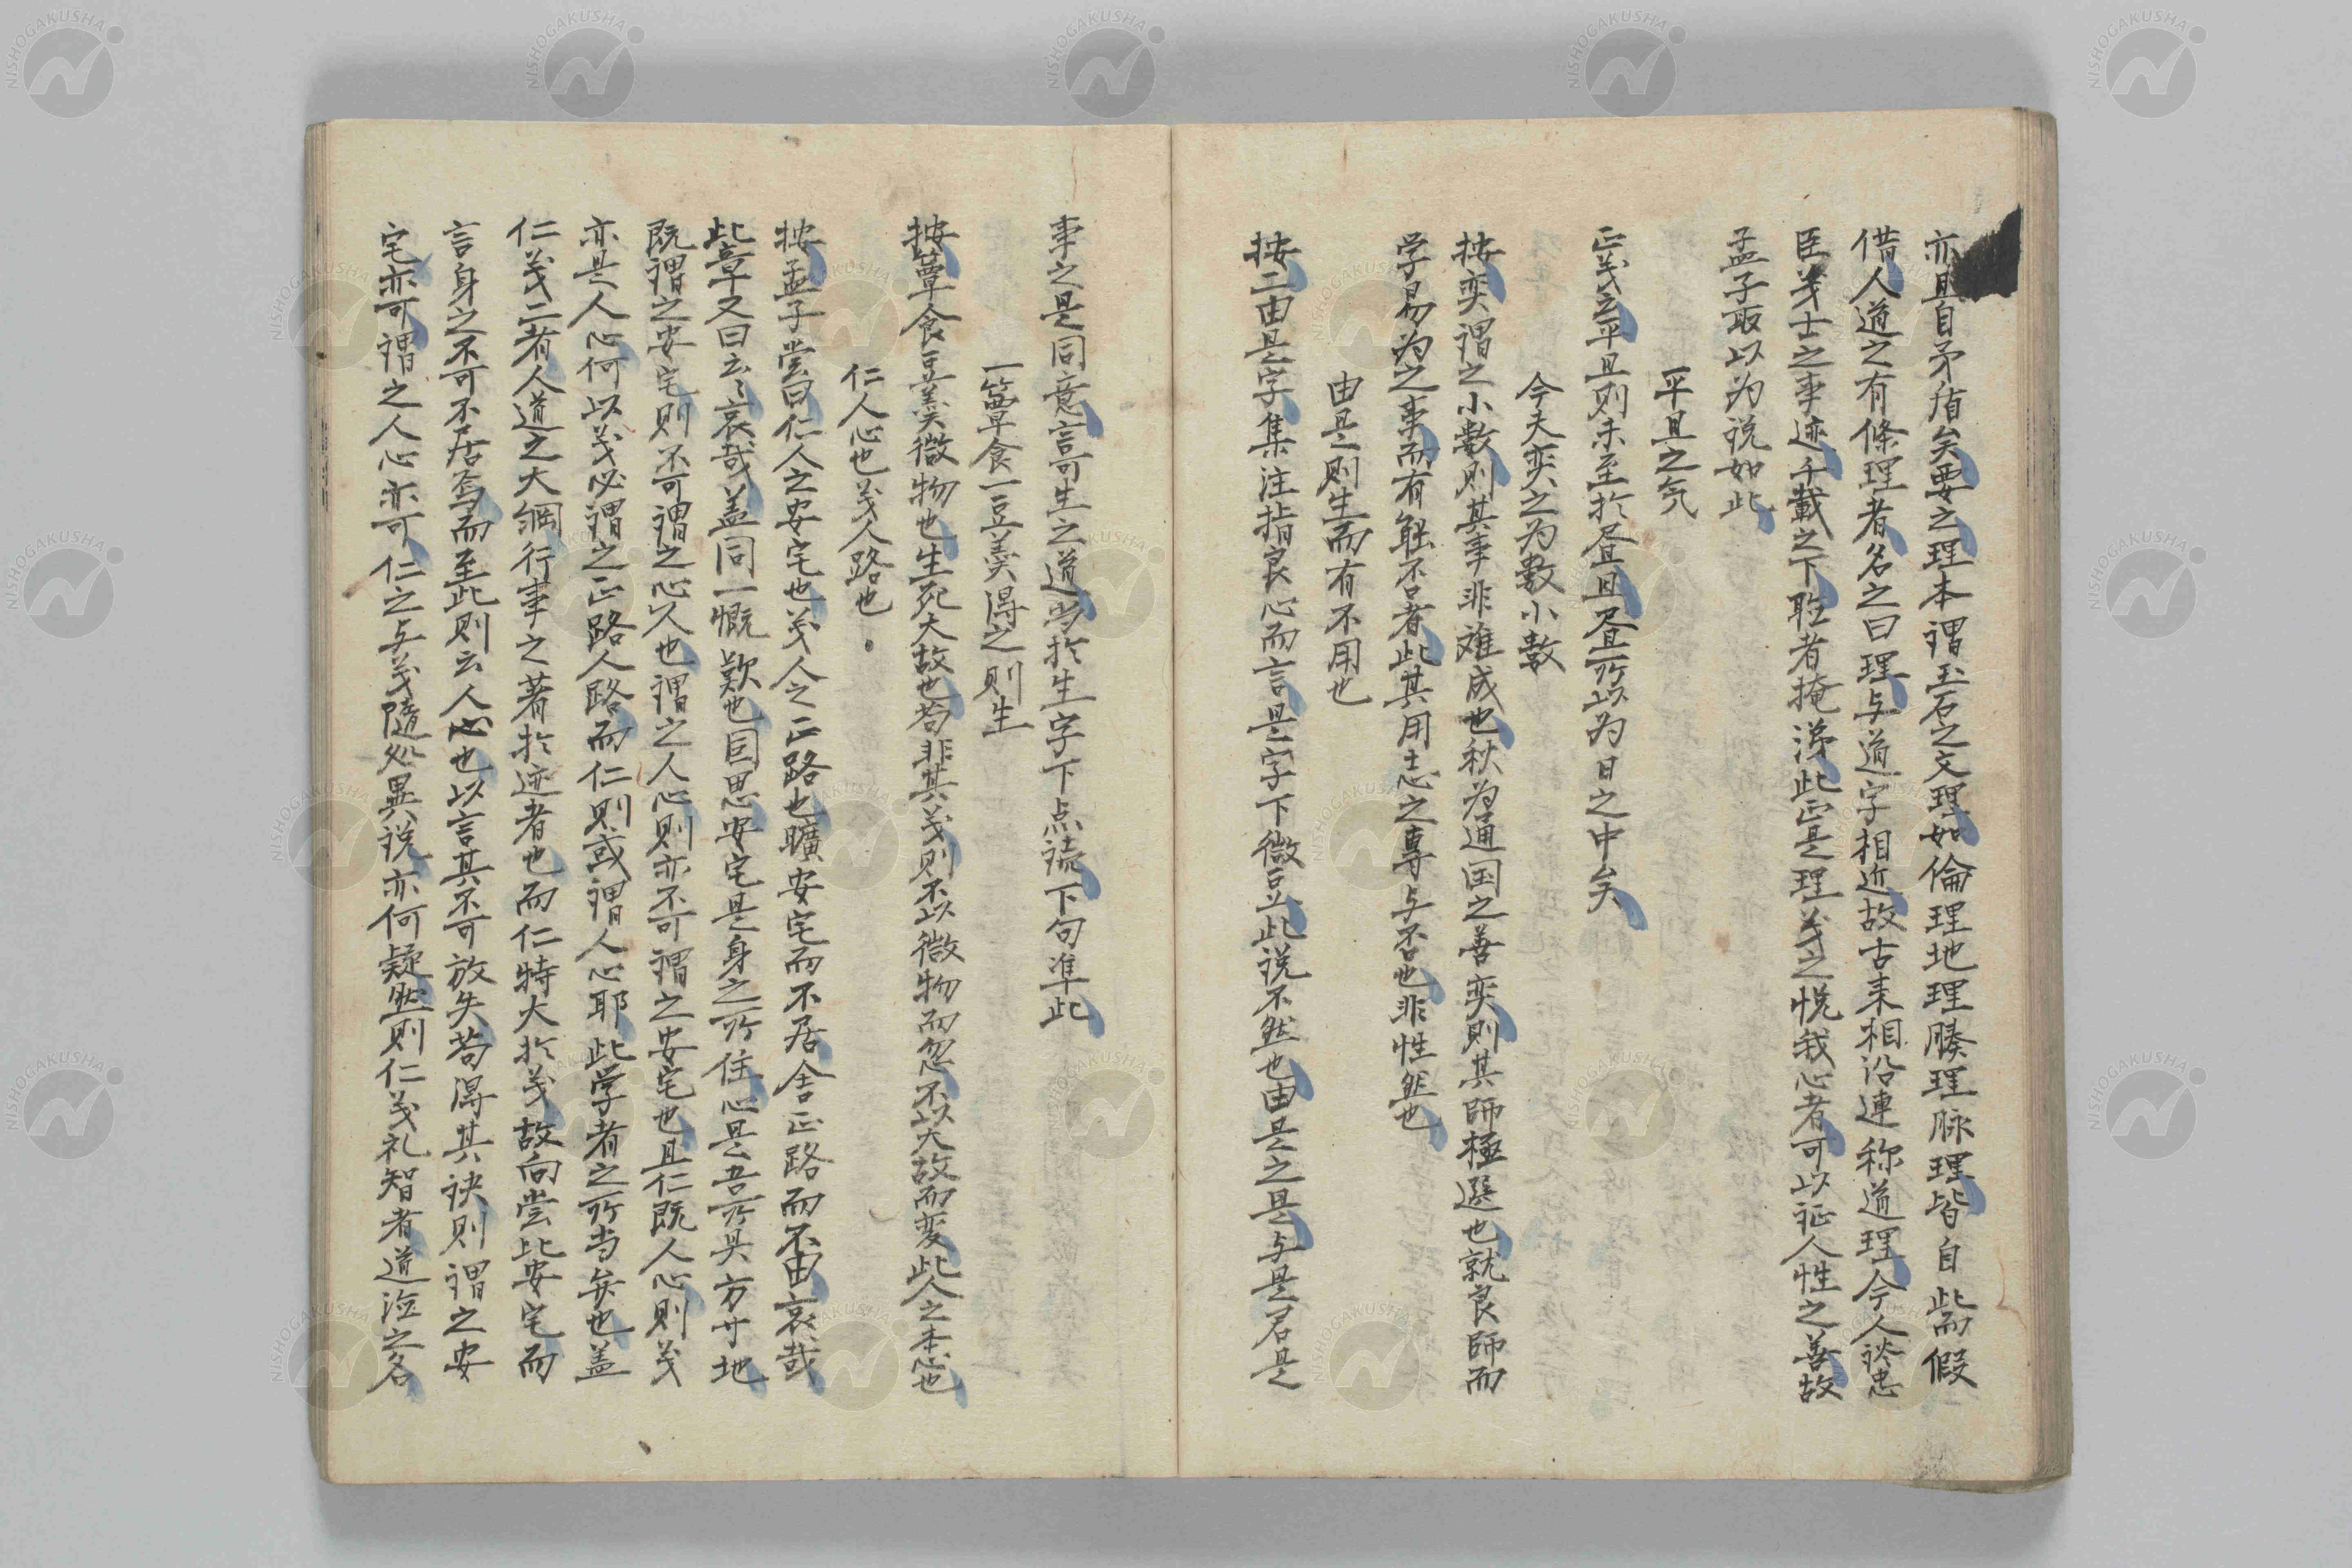 亦且自矛盾矣要之理本謂玉石之文理如倫理地理腠理脉理皆自此而假
借人道之有條理者名之曰理与道字相近故古来相沿連称道理今人談忠
臣義士之事迹千載之下聴者掩涕此正是理義之悦我心者可以証人性之善故
孟子取以為説如此
平旦之気
正義云平旦則未至於昼旦昼所以為日之中矣
今夫奕之為数小数
按奕謂之小数則其事非难成也秋為通国之善奕則其師極選也就良師而
学易為之事而有能不者此其用志之専与否也非性然也
由是則生而有不用也
按二由是字集注指良心而言是字下微豆此説不然也由是之是与是君是
事之是同意言可生之道当於生字下点読下句準此
一簞食一豆羹得之則生
按簞食豆羹微物也生死大故也苟非其義則不以微物而忽不以大故而変此人之本心也
仁人心也義人路也
按孟子嘗曰仁人之安宅也義人之正路也曠安宅而不居舍正路而不由哀哉
此章又曰云々哀哉盖同一慨歎也因思安宅是身之所住心是吾所具方寸地
既謂之安宅則不可謂之心人也謂之人心則亦不可謂之安宅也且仁既人心則義
亦是人心何以義必謂之正路人路而仁則或謂人心耶此学者之所当矣也盖
仁義二者人道之大綱行事之著於迹者也而仁特大於義故向嘗比安宅而
言身之不可不居焉而至此則云人心也以言其不可放失苟得其訣則謂之安
宅亦可謂之人心亦可仁之与義隨処異説亦何疑然則仁義礼智者道泣之名